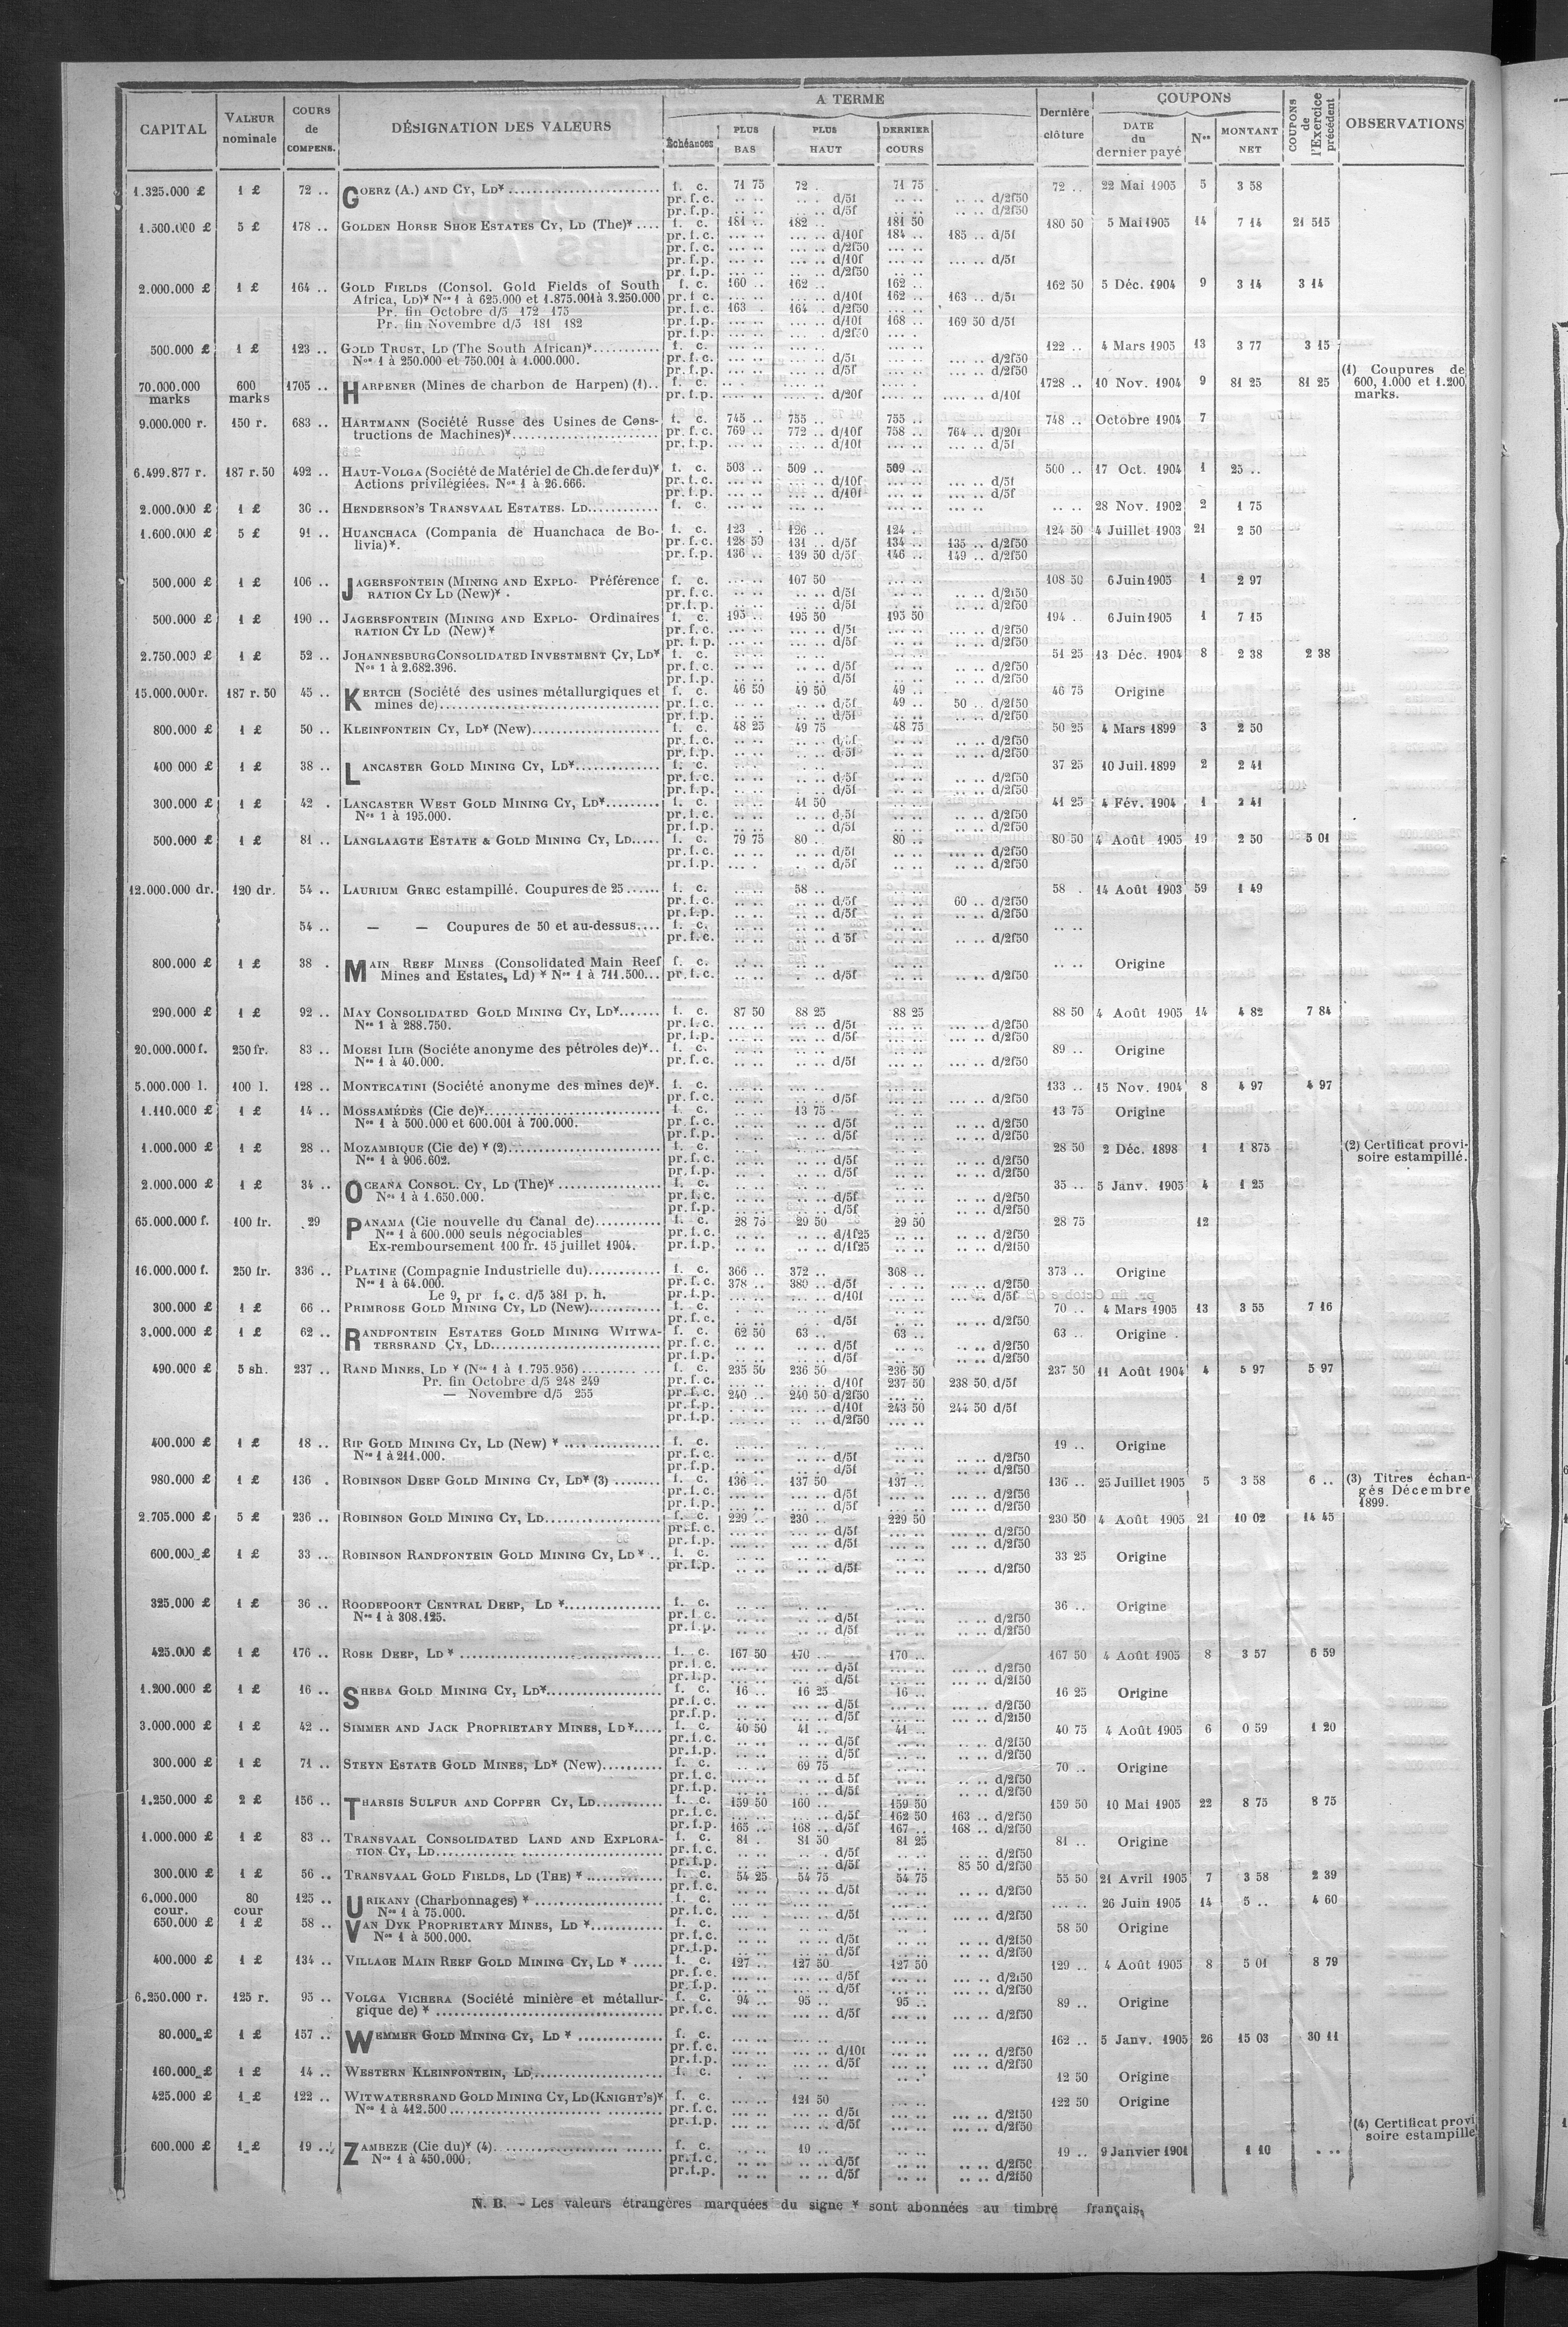 CAPITAL | VALEUR nominale | COURS de COMPENS. | DÉSIGNATION DES VALEURS | A TERME | Échéances | PLUS BAS | PLUS HAUT | DERNIER COURS | Dernière clôture | COUPONS | DATE du dernier payé | Nos | MONTANT NET | COUPONS de l'Exercice précédent | OBSERVATIONS
1.325.000 £ 1 £ 72 .. GOERZ (A.) AND CY, LD* f. c. 71 75 72 .. 71 75 72 .. 22 Mai 1905 5 3 58
pr. f. c. .. .. d/5f .. .. d/2f50
pr. f. p. .. .. d/5f .. .. d/2f50
1.500.000 £ 5 £ 178 .. GOLDEN HORSE SHOE ESTATES CY, LD (The)* .... f. c. 181 .. 182 .. 181 50 180 50 5 Mai 1905 14 7 14 21 515
pr. f. c. .... d/10f 184 .. 185 .. d/5f
pr. f. c. .... d/2f50
pr. f. p. .... d/10f .... d/5f
pr. f. p. .... d/2f50
2.000.000 £ 1 £ 164 .. GOLD FIELDS (Consol. Gold Fields of South f. c. 160 .. 162 .. 162 .. 162 50 5 Déc. 1904 9 3 14 3 14
Africa, LD)* Nos 1 à 625.000 et 1.875.001 à 3.250.000 pr. f. c. .... d/10f 162 .. 163 .. d/5f
Pr. fin Octobre d/5 172 175 pr. f. c. 163 .. 164 .. d/2f50
Pr. fin Novembre d/5 181 182 pr. f. p. .... d/10f 168 .. 169 50 d/5f
pr. f. p. .... d/2f50
500.000 £ 1 £ 123 .. GOLD TRUST, LD (The South African)* f. c. 122 .. 4 Mars 1905 13 3 77 3 15
Nos 1 à 250.000 et 750.001 à 1.000.000. pr. f. c. .... d/5f .... d/2f50
pr. f. p. .... d/5f .... d/2f50
70.000.000 marks 600 marks 1705 .. HARPENER (Mines de charbon de Harpen) (1).. f. c. 1728 .. 10 Nov. 1904 9 81 25 81 25 (1) Coupures de 600, 1.000 et 1.200 marks.
pr. f. p. .... d/20f .... d/10f
9.000.000 r. 150 r. 683 .. HARTMANN (Société Russe des Usines de Cons- f. c. 745 .. 755 .. 755 .. 748 .. Octobre 1904 7
tructions de Machines)* pr. f. c. 769 .. 772 .. d/10f 758 .. 764 .. d/20f
pr. f. p. .... d/10f .... d/5f
6.499.877 r. 187 r. 50 492 .. HAUT-VOLGA (Société de Matériel de Ch. de fer du)* f. c. 503 .. 509 .. 509 .. 500 .. 17 Oct. 1904 1 25 ..
Actions privilégiées. Nos 1 à 26.666. pr. f. c. .... d/10f .... d/5f
pr. f. p. .... d/10f .... d/5f
2.000.000 £ 1 £ 36 .. HENDERSON'S TRANSVAAL ESTATES. LD f. c. .... 28 Nov. 1902 2 1 75
1.600.000 £ 5 £ 91 .. HUANCHACA (Compania de Huanchaca de Bo- f. c. 123 .. 126 .. 124 .. 124 50 4 Juillet 1903 21 2 50
livia)*. pr. f. c. 128 50 131 .. d/5f 134 .. 135 .. d/2f50
pr. f. p. 136 .. 139 50 d/5f 146 .. 149 .. d/2f50
500.000 £ 1 £ 106 .. JAGERSFONTEIN (MINING AND EXPLO- Préférence f. c. .... 107 50 .... 108 50 6 Juin 1905 1 2 97
RATION CY LD (New)* . pr. f. c. .... d/5f .... d/2f50
pr. f. p. .... d/5f .... d/2f50
500.000 £ 1 £ 190 .. JAGERSFONTEIN (MINING AND EXPLO- Ordinaires f. c. 195 .. 195 50 195 50 194 .. 6 Juin 1905 1 7 15
RATION CY LD (New)* pr. f. c. .... d/5f .... d/2f50
pr. f. p. .... d/5f .... d/2f50
2.750.000 £ 1 £ 52 .. JOHANNESBURG CONSOLIDATED INVESTMENT CY, LD* f. c. 51 25 13 Déc. 1904 8 2 38 2 38
Nos 1 à 2.682.396. pr. f. c. .... d/5f .... d/2f50
pr. f. p. .... d/5f .... d/2f50
15.000.000 r. 187 r. 50 45 .. KERTCH (Société des usines métallurgiques et f. c. 46 50 49 50 49 .. 46 75 Origine
mines de) pr. f. c. .... d/5f 49 .. 50 .. d/2f50
pr. f. p. .... d/5f .... d/2f50
800.000 £ 1 £ 50 .. KLEINFONTEIN CY, LD* (New) f. c. 48 25 49 75 48 75 50 25 4 Mars 1899 3 2 50
pr. f. c. .... d/5f .... d/2f50
pr. f. p. .... d/5f .... d/2f50
400 000 £ 1 £ 38 .. LANCASTER GOLD MINING CY, LD* f. c. 37 25 10 Juil. 1899 2 2 41
pr. f. c. .... d/5f .... d/2f50
pr. f. p. .... d/5f .... d/2f50
300.000 £ 1 £ 42 . LANCASTER WEST GOLD MINING CY, LD* f. c. .... 41 50 .... 41 25 4 Fév. 1904 1 2 41
Nos 1 à 195.000. pr. f. c. .... d/5f .... d/2f50
pr. f. p. .... d/5f .... d/2f50
500.000 £ 1 £ 81 .. LANGLAAGTE ESTATE & GOLD MINING CY, LD f. c. 79 75 80 .. 80 .. 80 50 4 Août 1905 19 2 50 5 01
pr. f. c. .... d/5f .... d/2f50
pr. f. p. .... d/5f .... d/2f50
12.000.000 dr. 120 dr. 54 .. LAURIUM GREC estampillé. Coupures de 25 f. c. .... 58 .. 58 . 14 Août 1903 59 1 49
pr. f. c. .... d/5f 60 .. d/2f50
pr. f. p. .... d/5f .... d/2f50
54 .. — — Coupures de 50 et au-dessus f. c. ....
pr. f. c. .... d 5f .... d/2f50
800.000 £ 1 £ 38 . MAIN REEF MINES (Consolidated Main Reef f. c. .... Origine
Mines and Estates, Ld) * Nos 1 à 711.500... pr. f. c. .... d/5f .... d/2f50
290.000 £ 1 £ 92 .. MAY CONSOLIDATED GOLD MINING CY, LD* f. c. 87 50 88 25 88 25 88 50 4 Août 1905 14 4 82 7 84
Nos 1 à 288.750. pr. f. c. .... d/5f .... d/2f50
pr. f. p. .... d/5f .... d/2f50
20.000.000 f. 250 fr. 83 .. MOESI ILIR (Sociéte anonyme des pétroles de)*.. f. c. 89 .. Origine
Nos 1 à 40.000. pr. f. c. .... d/5f .... d/2f50
5.000.000 l. 100 l. 128 .. MONTECATINI (Société anonyme des mines de)*. f. c. 133 .. 15 Nov. 1904 8 4 97 4 97
pr. f. c. .... d/5f .... d/2f50
1.110.000 £ 1 £ 14 .. MOSSAMÉDÈS (Cie de)* f. c. .... 13 75 13 75 Origine
Nos 1 à 500.000 et 600.001 à 700.000. pr. f. c. .... d/5f .... d/2f50
pr. f. p. .... d/5f .... d/2f50
1.000.000 £ 1 £ 28 .. MOZAMBIQUE (Cie de) * (2) f. c. 28 50 2 Déc. 1898 1 1 875 (2) Certificat provi- soire estampillé.
Nos 1 à 906.602. pr. f. c. .... d/5f .... d/2f50
pr. f. p. .... d/5f .... d/2f50
2.000.000 £ 1 £ 34 .. OCEANA CONSOL. CY, LD (The)* f. c. 35 .. 5 Janv. 1905 4 1 25
Nos 1 à 1.650.000. pr. f. c. .... d/5f .... d/2f50
pr. f. p. .... d/5f .... d/2f50
65.000.000 f. 100 fr. 29 PANAMA (Cie nouvelle du Canal de) f. c. 28 75 29 50 29 50 28 75 12
Nos 1 à 600.000 seuls négociables pr. f. c. .... d/1f25 .... d/2f50
Ex-remboursement 100 fr. 15 juillet 1904. pr. f. p. .... d/1f25 .... d/2f50
16.000.000 f. 250 fr. 336 .. PLATINE (Compagnie Industrielle du) f. c. 366 .. 372 .. 368 .. 373 .. Origine
Nos 1 à 64.000. pr. f. c. 378 .. 380 .. d/5f .... d/2f50
Le 9, pr f. c. d/5 381 p. h. pr. f. p. .... d/10f .... d/5f
300.000 £ 1 £ 66 .. PRIMROSE GOLD MINING CY, LD (New) f. c. 70 .. 4 Mars 1905 13 3 55 7 16
pr. f. c. .... d/5f .... d/2f50
3.000.000 £ 1 £ 62 .. RANDFONTEIN ESTATES GOLD MINING WITWA- f. c. 62 50 63 .. 63 .. 63 .. Origine
TERSRAND CY, LD pr. f. c. .... d/5f .... d/2f50
pr. f. p. .... d/5f .... d/2f50
490.000 £ 5 sh. 237 .. RAND MINES, LD * (Nos 1 à 1.795.956) f. c. 235 50 236 50 236 50 237 50 11 Août 1904 4 5 97 5 97
Pr. fin Octobre d/5 248 249 pr. f. c. .... d/10f 237 50 238 50 d/5f
— Novembre d/5 255 pr. f. c. 240 .. 240 50 d/2f50
pr. f. p. .... d/10f 243 50 244 50 d/5f
pr. f. p. .... d/2f50
400.000 £ 1 £ 18 .. RIP GOLD MINING CY, LD (New) * f. c. 19 .. Origine
Nos 1 à 211.000. pr. f. c. .... d/5f .... d/2f50
pr. f. p. .... d/5f .... d/2f50
980.000 £ 1 £ 136 . ROBINSON DEEP GOLD MINING CY, LD* (3) f. c. 136 .. 137 50 137 .. 136 .. 25 Juillet 1905 5 3 58 6 .. (3) Titres échan- gés Décembre 1899.
pr. f. c. .... d/5f .... d/2f50
pr. f. p. .... d/5f .... d/2f50
2.705.000 £ 5 £ 236 .. ROBINSON GOLD MINING CY, LD f. c. 229 .. 230 .. 229 50 230 50 4 Août 1905 21 10 02 14 45
pr. f. c. .... d/5f .... d/2f50
pr. f. p. .... d/5f .... d/2f50
600.000 £ 1 £ 33 .. ROBINSON RANDFONTEIN GOLD MINING CY, LD * .. f. c. 33 25 Origine
pr. f. p. .... d/5f .... d/2f50
325.000 £ 1 £ 36 .. ROODEPOORT CENTRAL DEEP, LD * f. c. 36 .. Origine
Nos 1 à 308.125. pr. f. c. .... d/5f .... d/2f50
pr. f. p. .... d/5f .... d/2f50
425.000 £ 1 £ 176 .. ROSE DEEP, LD * f. c. 167 50 170 .. 170 .. 167 50 4 Août 1905 8 3 57 6 59
pr. f. c. .... d/5f .... d/2f50
pr. f. p. .... d/5f .... d/2f50
1.200.000 £ 1 £ 16 .. SHEBA GOLD MINING CY, LD* f. c. 16 .. 16 25 16 .. 16 25 Origine
pr. f. c. .... d/5f .... d/2f50
pr. f. p. .... d/5f .... d/2f50
3.000.000 £ 1 £ 42 .. SIMMER AND JACK PROPRIETARY MINES, LD* f. c. 40 50 41 .. 41 .. 40 75 4 Août 1905 6 0 59 1 20
pr. f. c. .... d/5f .... d/2f50
pr. f. p. .... d/5f .... d/2f50
300.000 £ 1 £ 71 .. STEYN ESTATE GOLD MINES, LD* (New) f. c. .... 69 75 .... 70 .. Origine
pr. f. c. .... d 5f .... d/2f50
pr. f. p. .... d/5f .... d/2f50
1.250.000 £ 2 £ 156 .. THARSIS SULFUR AND COPPER CY, LD f. c. 159 50 160 .. 159 50 159 50 10 Mai 1905 22 8 75 8 75
pr. f. c. .... d/5f 162 50 163 .. d/2f50
pr. f. p. 165 .. 168 .. d/5f 167 .. 168 .. d/2f50
1.000.000 £ 1 £ 83 .. TRANSVAAL CONSOLIDATED LAND AND EXPLORA- f. c. 81 . 81 50 81 25 81 .. Origine
TION CY, LD pr. f. c. .... d/5f .... d/2f50
pr. f. p. .... d/5f 85 50 d/2f50
300.000 £ 1 £ 56 .. TRANSVAAL GOLD FIELDS, LD (THE) * f. c. 54 25 54 75 54 75 55 50 21 Avril 1905 7 3 58 2 39
pr. f. c. .... d/5f .... d/2f50
6.000.000 cour. 80 cour 125 .. URIKANY (Charbonnages) * f. c. .... 26 Juin 1905 14 5 .. 4 60
Nos 1 à 75.000. pr. f. c. .... d/5f .... d/2f50
650.000 £ 1 £ 58 .. VAN DYK PROPRIETARY MINES, LD * f. c. 58 50 Origine
Nos 1 à 500.000. pr. f. c. .... d/5f .... d/2f50
pr. f. p. .... d/5f .... d/2f50
400.000 £ 1 £ 134 .. VILLAGE MAIN REEF GOLD MINING CY, LD * f. c. 127 .. 127 50 127 50 129 .. 4 Août 1905 8 5 01 8 79
pr. f. c. .... d/5f .... d/2f50
pr. f. p. .... d/5f .... d/2f50
6.250.000 r. 125 r. 95 .. VOLGA VICHERA (Société minière et métallur- f. c. 94 .. 95 .. 95 .. 89 .. Origine
gique de) * pr. f. c. .... d/5f .... d/2f50
80.000 £ 1 £ 157 .. WEMMER GOLD MINING CY, LD * f. c. 162 .. 5 Janv. 1905 26 15 03 30 11
pr. f. c. .... d/10f .... d/2f50
pr. f. p. .... d/5f .... d/2f50
160.000 £ 1 £ 14 .. WESTERN KLEINFONTEIN, LD f. c. 12 50 Origine
425.000 £ 1 £ 122 .. WITWATERSRAND GOLD MINING CY, LD (KNIGHT'S)* f. c. .... 121 50 .... 122 50 Origine
Nos 1 à 412.500 pr. f. c. .... d/5f .... d/2f50
pr. f. p. .... d/5f .... d/2f50
600.000 £ 1 £ 19 .. ZAMBEZE (Cie du)* (4) f. c. .... 19 .. 19 .. 9 Janvier 1901 1 10 .... (4) Certificat provi soire estampille
Nos 1 à 450.000. pr. f. c. .... d/5f .... d/2f50
pr. f. p. .... d/5f .... d/2f50
N. B. - Les valeurs étrangères marquées du signe * sont abonnées au timbre français.